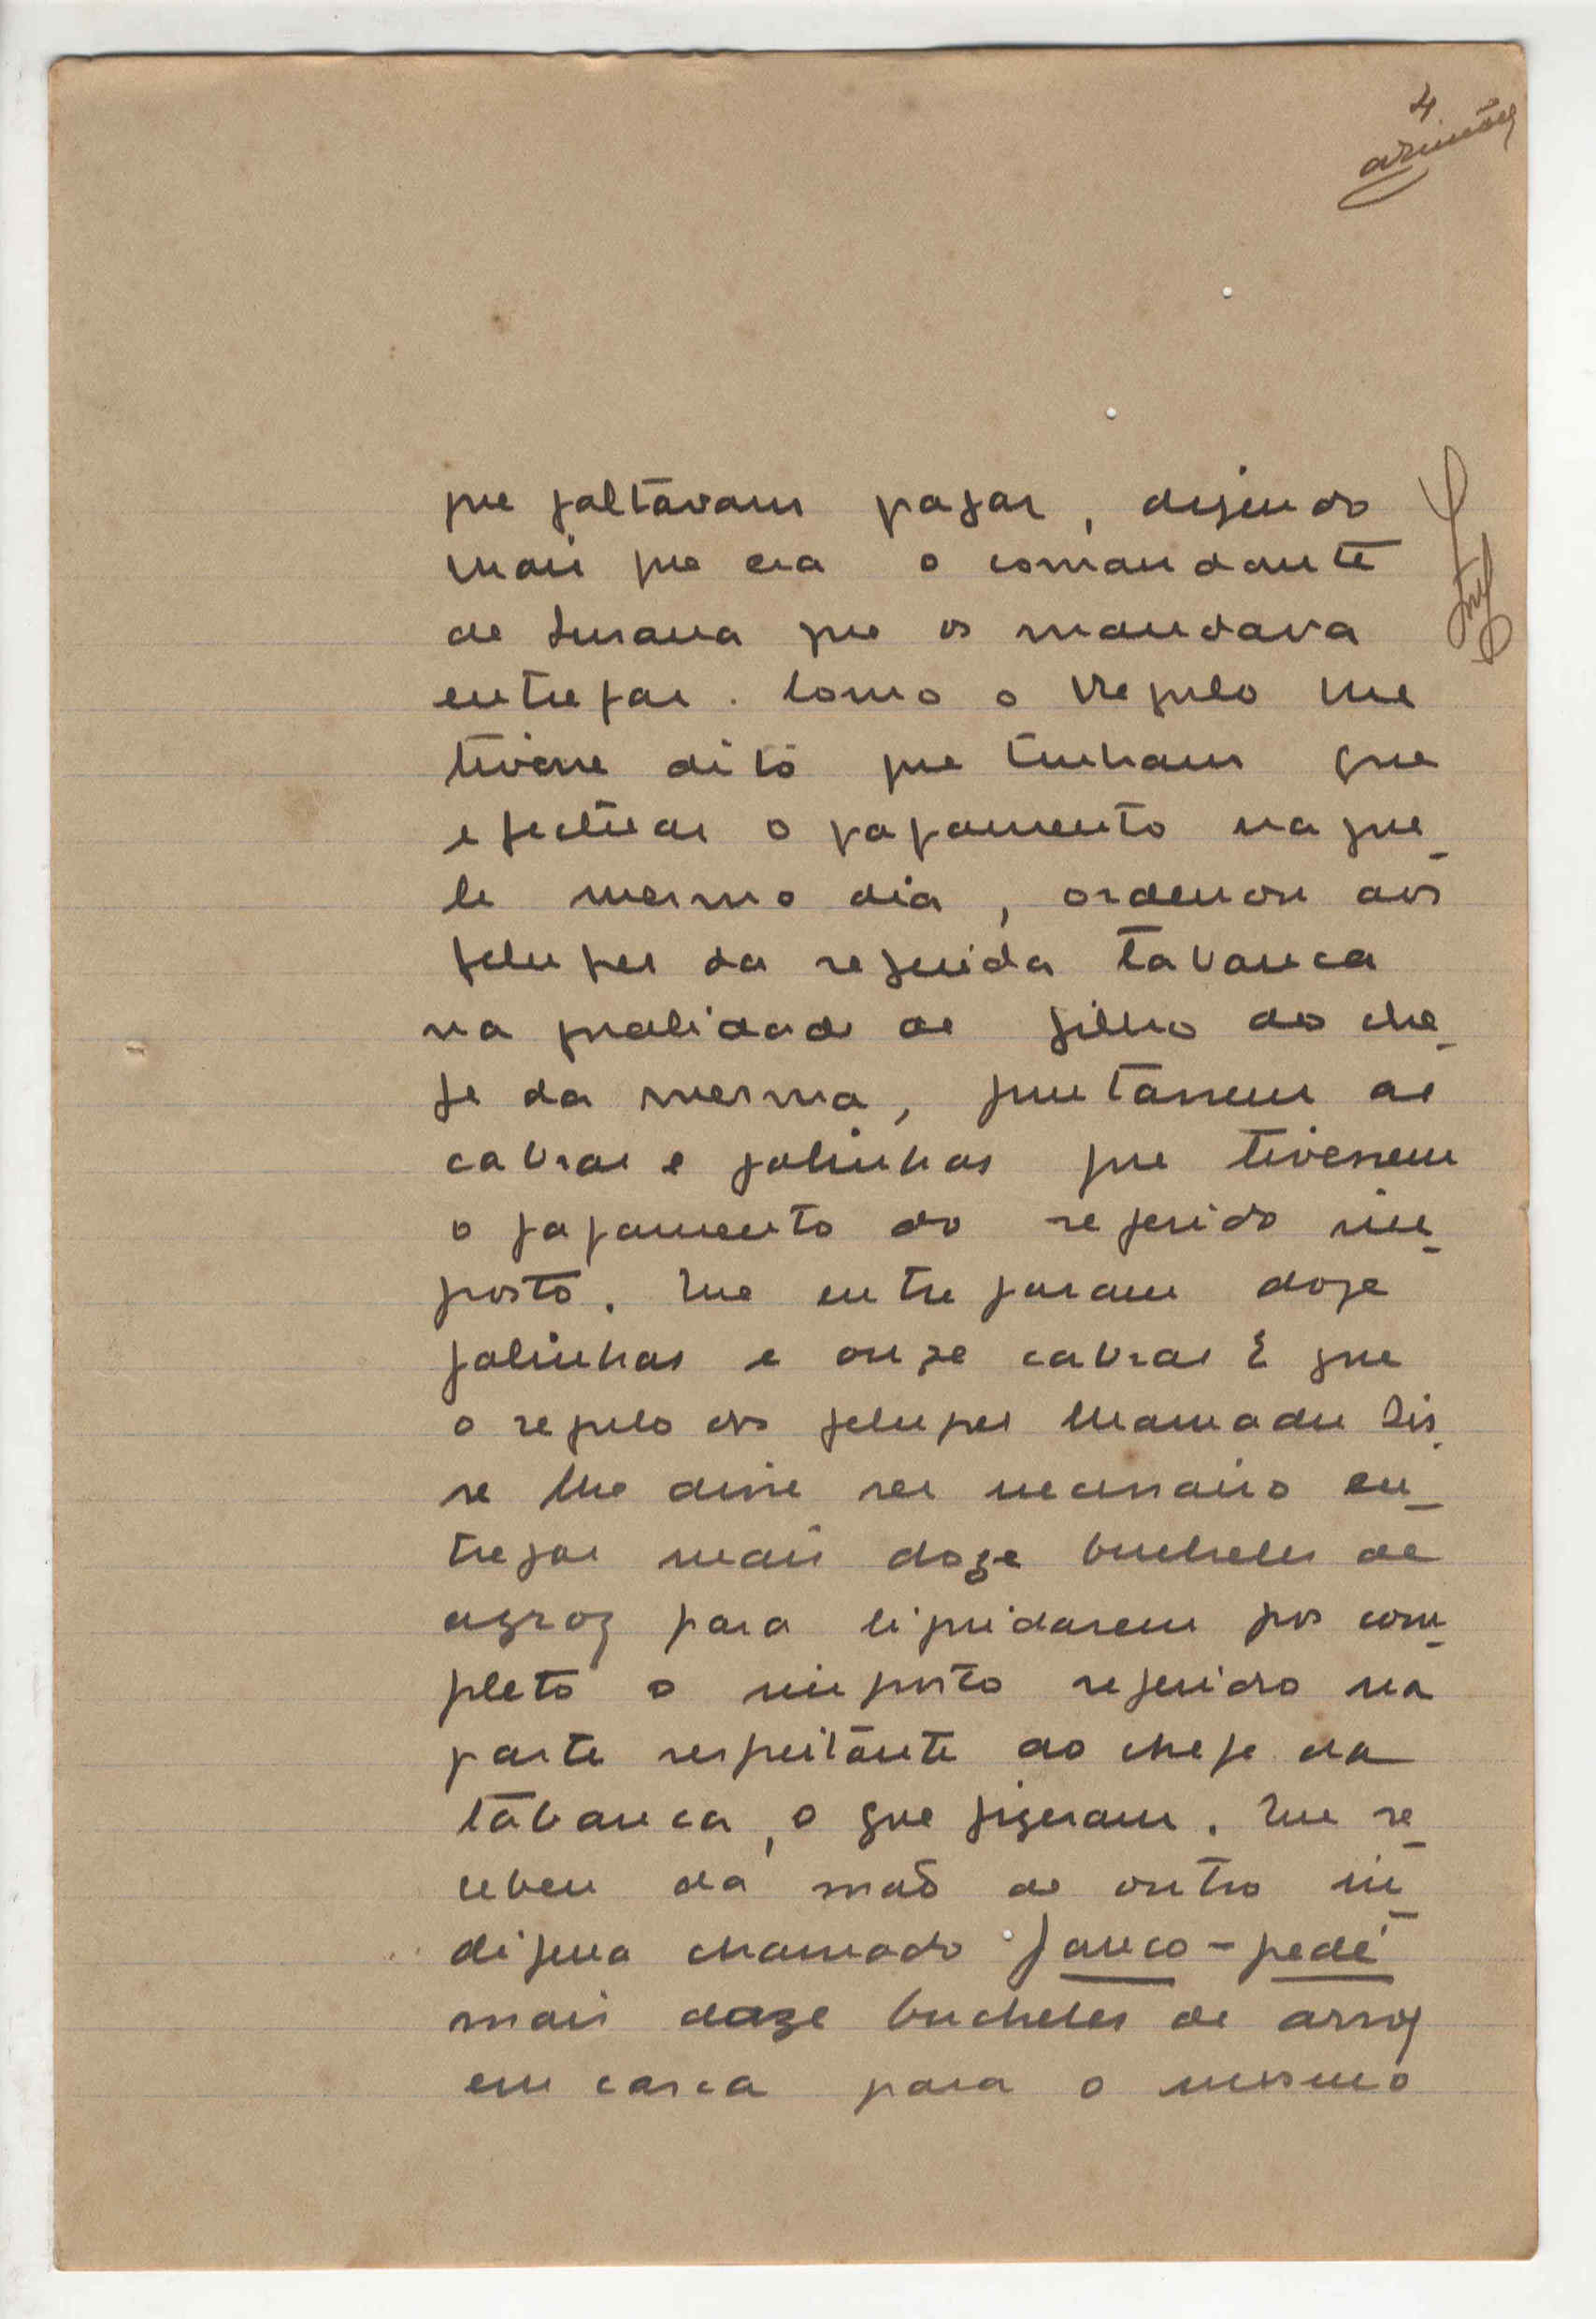 4
que faltavam pagar, dizendo
mais que era o comandante
de Susana que os mandava
entregar. Como o Regulo lhe
tivesse dito que tinham que
efectuar o pagamento naque_
le mesmo dia, ordenou aos
felupes da referida tabanca
na qualidade de filho do che_
fe da mesma, juntassem as
cabras e galinhas que tivessem
o pagamento do referido im_
posto. Que entregaram doze
galinhas e onze cabras E que
o regulo dos felupes Mamadu Sis_
se lhe disse ser necessario en_
tregar mais doze bucheles de
arroz para liquidarem por com_
pleto o imposto referido na
parte respeitante ao chefe da
tabanca, o que fizeram. Que re_
cebeu da mão de outro in_
digena chamado Janco-pedé
mais doze bucheles de arroz
em casca para o mesmo